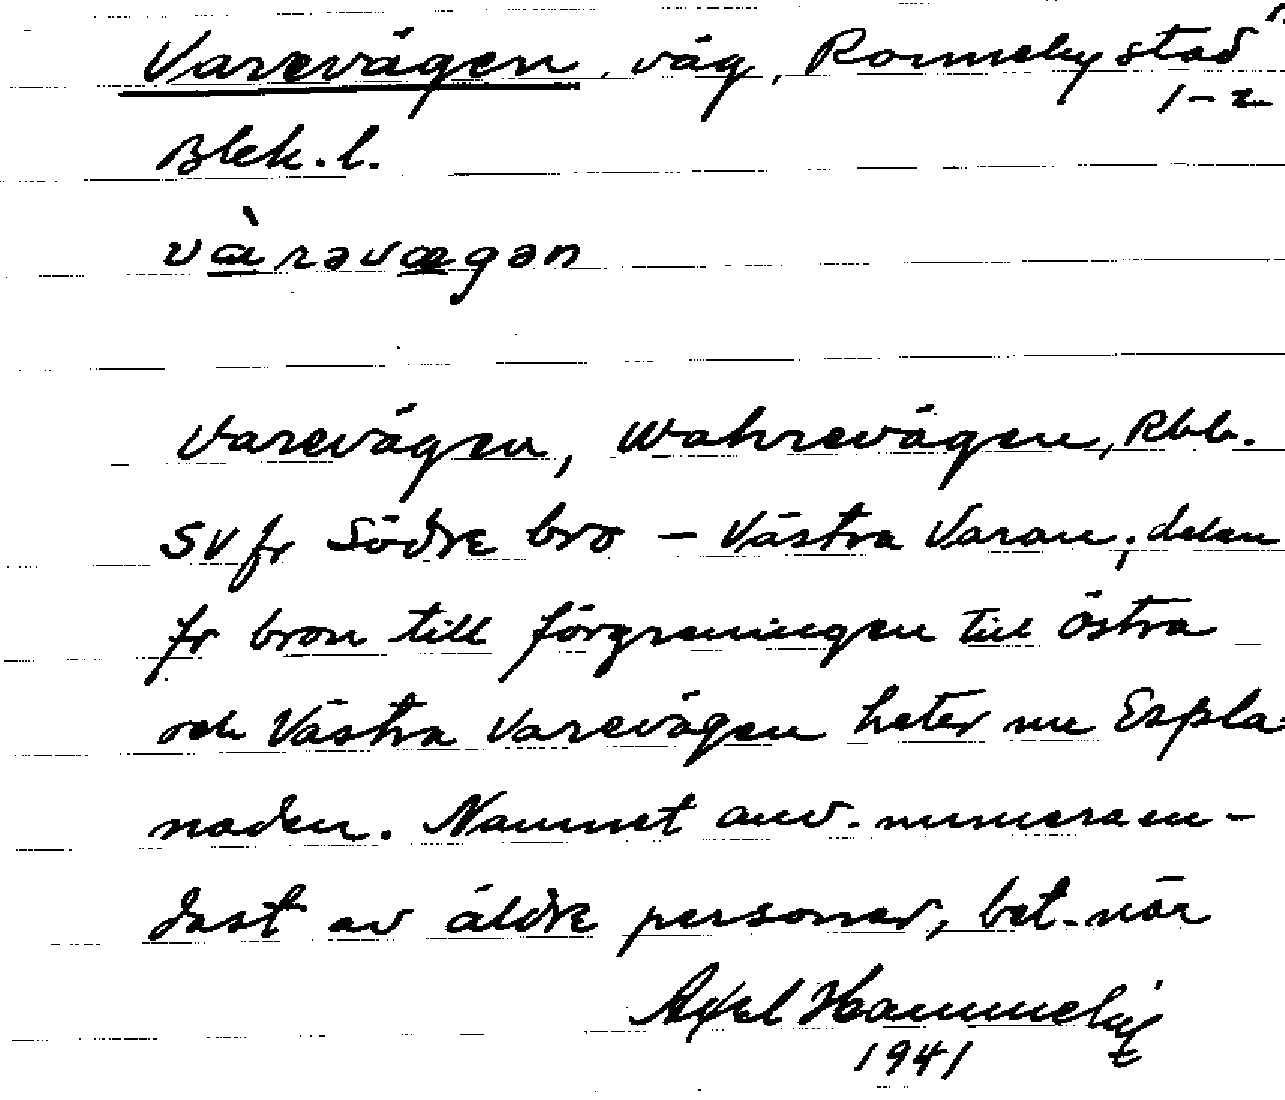 Varevägen, väg, Ronneby stad
1-2
Blek. l.
và̱rəvæ̱gən
Varevägen, Wahrevägen, Rbb.
SV fr Södre bro – Västra Varan; delen
fr bron till förgreningen till Östra
och Västra Varevägen heter nu Espla-
naden. Namnet anv. numeraen-
dast av äldre personer, bet. när
Axel Hammelig
1941